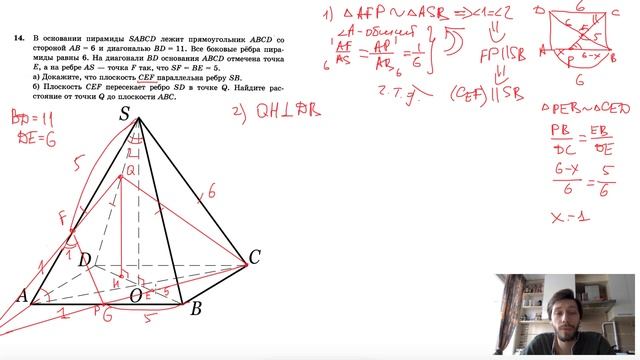 14. В основании пирамиды SABCD лежит прямоугольник ABCD со
стороной AB = 6 и диагональю BD = 11. Все боковые рёбра пира-
миды равны 6. На диагонали BD основания ABCD отмечена точка
E, а на ребре AS — точка F так, что SF = BE = 5.
а) Докажите, что плоскость CEF параллельна ребру SB.
б) Плоскость CEF пересекает ребро SD в точке Q. Найдите рас-
стояние от точки Q до плоскости ABC.
BD = 11
DE = 6
1) △AFP ~ △ASB => ∠1 = ∠2
∠A - общий
AF/AS = AP/AB = 1/6
FP || SB
ч.т.д.
(CEF) || SB
2) QH ⊥ DB
6
D
C
6
5
5
A
x
P
6-x
B
6
△PEB ~ △CED
PB/DC = EB/DE
6-x/6 = 5/6
x = 1
S
5
Q
6
F
1
1
D
H
O
E
5
C
A
1
P
6
5
B